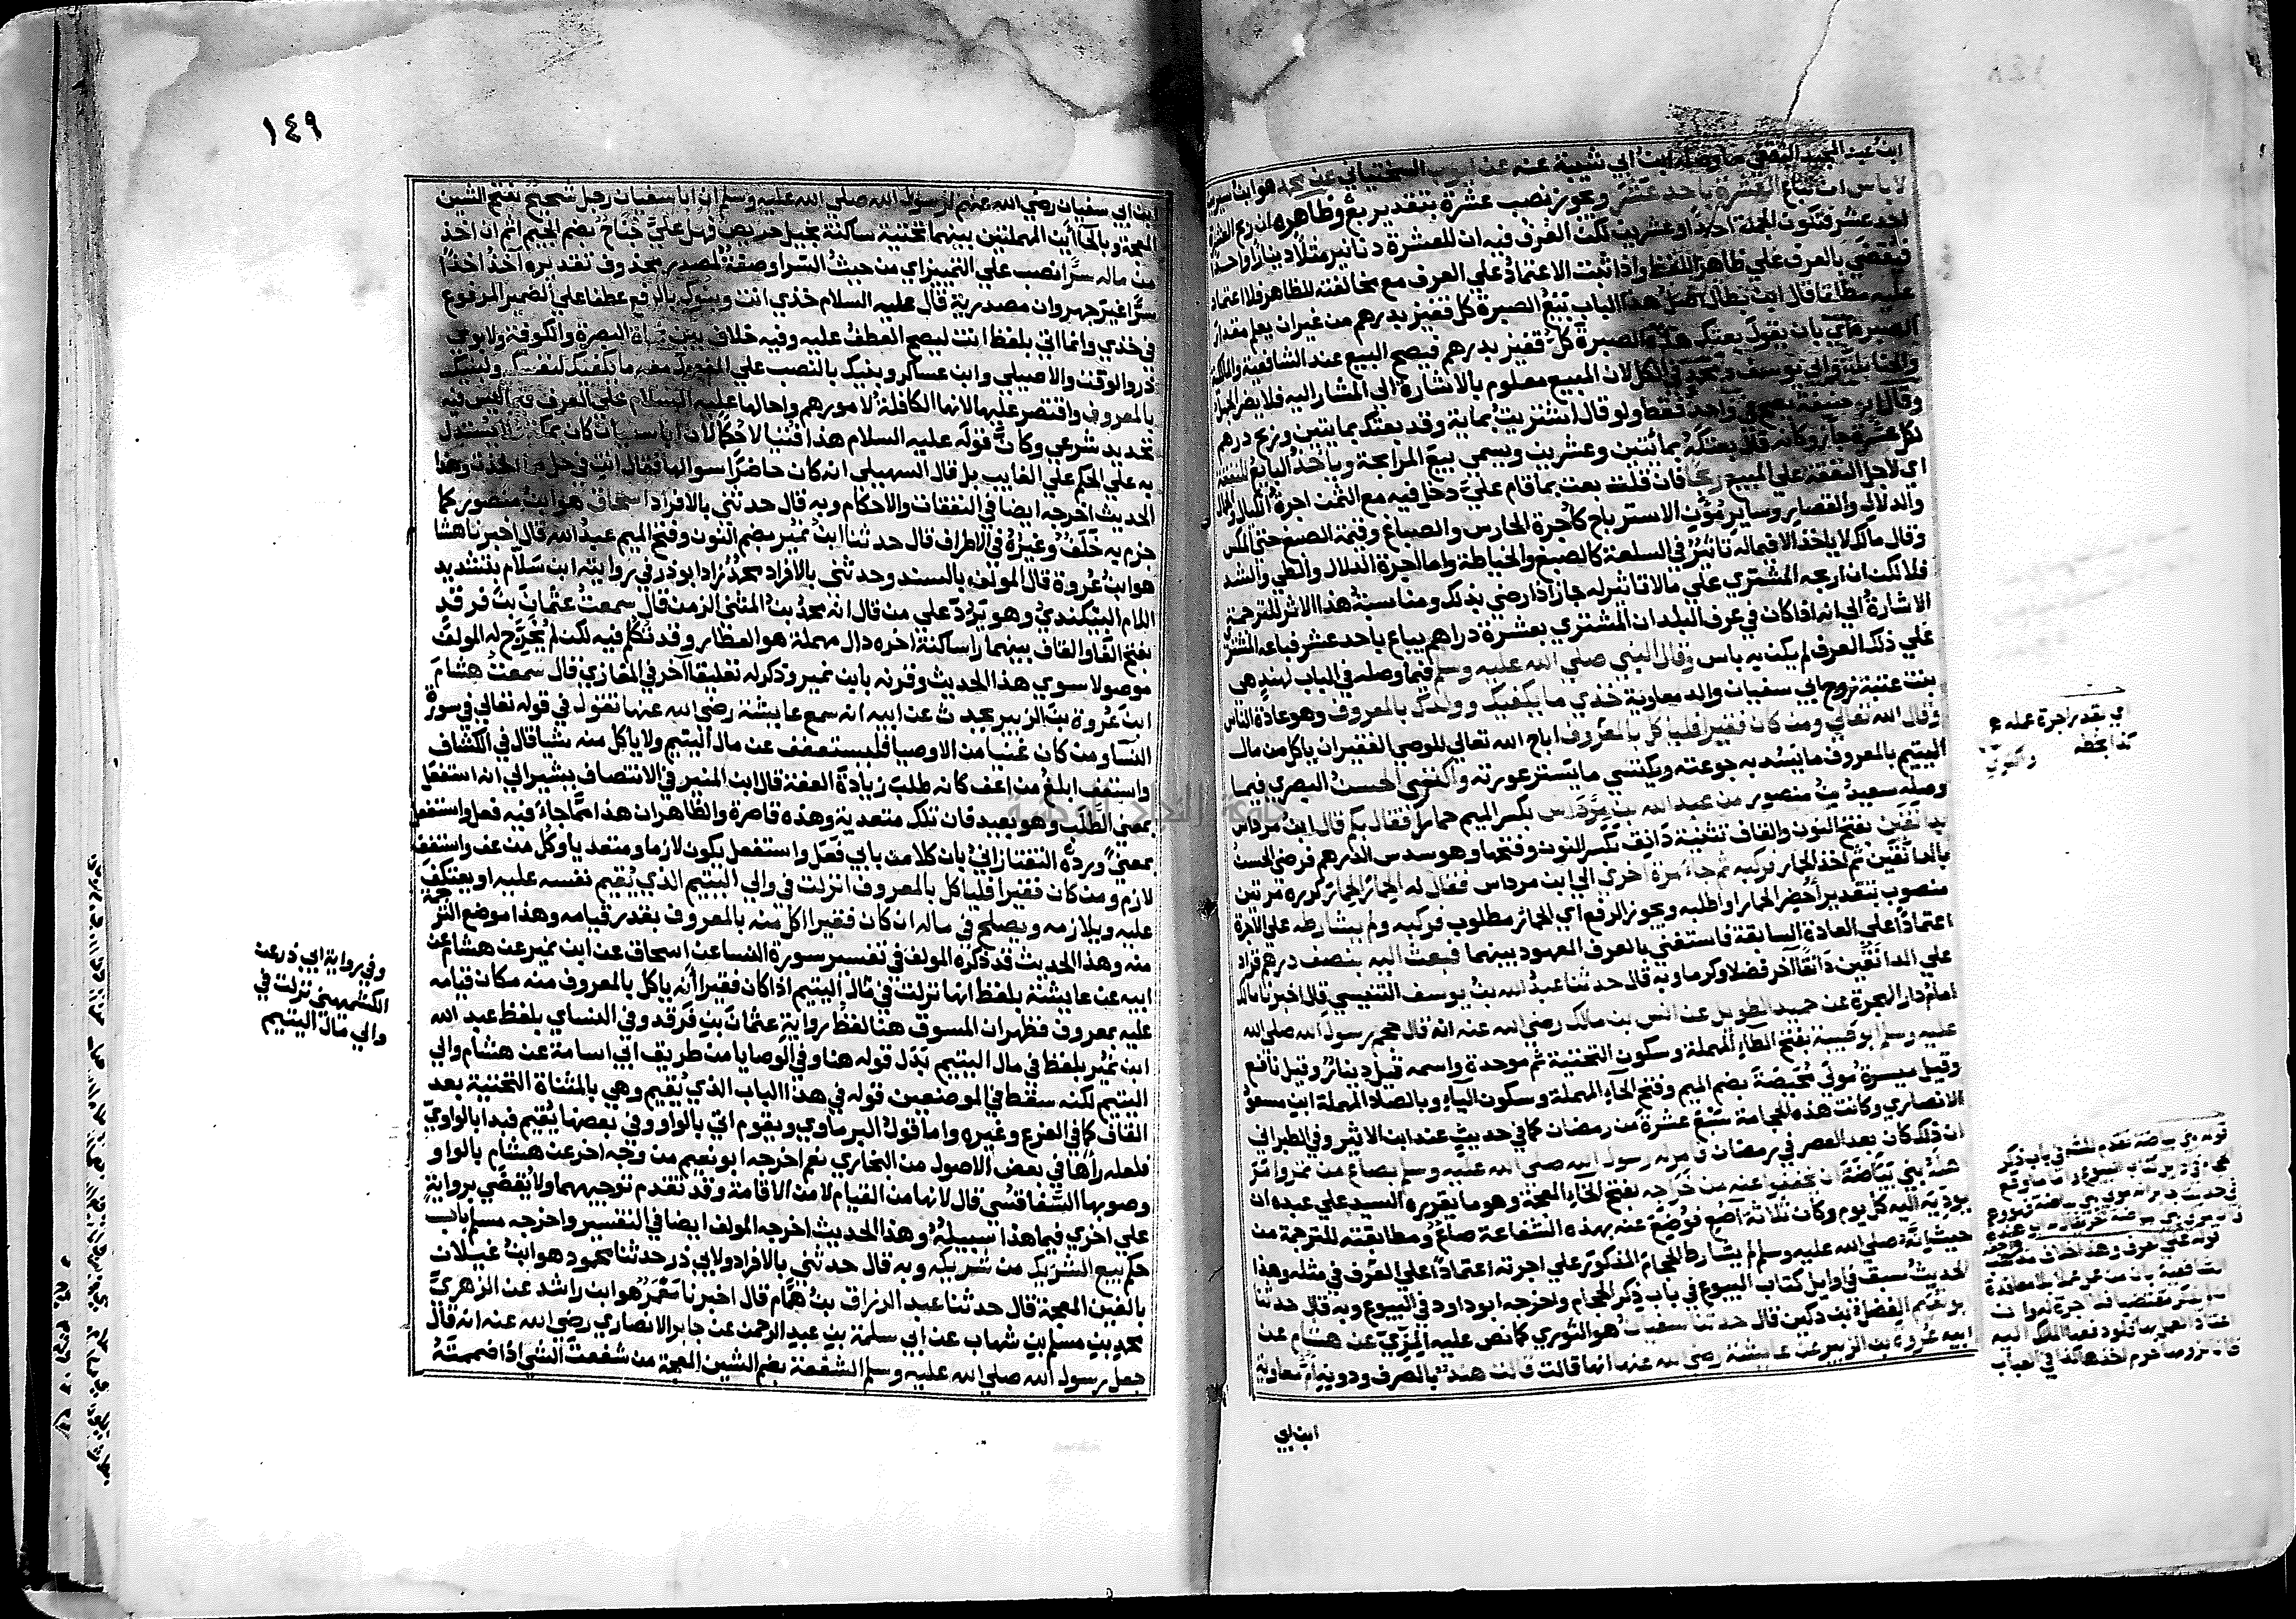 ابن عبد المجيد الثقفي مما وصله ابن ابي شيبة عنه عن ايوب السختياني عن محمد هو ابن سيرين
لا باس ان تباع العشرة باحد عشر ويجوز نصب عشرة بتقدير بع وظاهره ان ربح العشرة
احد عشر فتكون الجملة احدا وعشرين لكن العرف فيه ان للعشرة دنانير مثلا دينارا واحدا
فيقضي بالعرف علي ظاهر اللفظ واذا ثبت الاعتماد علي العرف مع مخالفته للظاهر فلا اعتماد
عليه مطلقا قال ابن بطال اصل هذا الباب بيع الصبرة كل قفيز بدرهم من غير ان يعلم مقدار
الصبرة اي بان يقول بعتك هذه الصبرة كل قفيز بدرهم فيصح البيع عند الشافعية والمالكية
والحنابلة وابي يوسف ومحمد في الكل لان المبيع معلوم بالاشارة الي المشار اليه فلا يضر الجهل
وقال ابو حنيفة يصح في واحد فقط ولو قال اشتريت بماية وقد بعتك بمايتين وربح درهم
لكل عشرة جاز وكانه قال بعتكه بمائتين وعشرين ويسمي بيع المرابحة وياخذ البايع للنفقة
اي لاجل النفقة علي المبيع ربحا فان قلت بعت بما قام علي دخل فيه مع الثمن اجرة الكيال والحمال
والدلال والقصار وساير مؤن الاسترباح كاجرة الحارس والصباغ وقيمة الصبغ حتي المكس
وقال مالك لا ياخذ الا فيما له تاثير في السلعة كالصبغ والخياطة واما اجرة الدلال والطي والشد
فلا لكن ان اربحه المشتري علي ما لا تاثير له جاز اذا رضي بذلك ومناسبة هذا الاثر للترجمة
الاشارة الي انه اذا كان في عرف البلد ان المشتري بعشرة دراهم يباع باحد عشر فباعه المشتري
علي ذلك العرف لم يكن به باس وقال النبي صلي الله عليه وسلم فيما وصله في الباب لهند هي
بنت عتبة زوج ابي سفيان والد معاوية خذي ما يكفيك وولدك بالمعروف وهو عادة الناس
وقال الله تعالي ومن كان فقيرا فلياكل بالمعروف اباح الله تعالي للوصي الفقير ان ياكل من مال
اليتيم بالمعروف ما يسد به جوعته ويكتسي ما يستر عورته واكتري الحسن البصري فيما
وصله سعيد بن منصور من عبد الله بن مرداس بكسر الميم حمارا فقال بكم قال ابن مرداس
بدانقين بفتح النون والقاف تثنية دانق بكسر النون وفتحها وهو سدس الدرهم فرضي الحسن
بالدانقين ثم اخذ الحمار فركبه ثم جاء مرة اخري الي ابن مرداس فقال له الحمار الحمار كرره مرتين
منصوب بتقدير احضر الحمار او اطلبه ويجوز الرفع اي الحمار مطلوب فركبه ولم يشارطه علي الاجرة
اعتمادا علي العادة السابقة فاستغني بالعرف المعهود بينهما فبعث اليه بنصف درهم فزاد
علي الدانقين دانقا اخر فضلا وكرما وبه قال حدثنا عبد الله بن يوسف التنيسي قال اخبرنا مالك
امام دار الهجرة عن حميد الطويل عن انس بن مالك رضي الله عنه انه قال حجم رسول الله صلي الله
عليه وسلم ابو طيبة بفتح الطاء المهملة وسكون التحتية ثم موحدة واسمه قيل دينار وقيل نافع
وقيل ميسرة مولي محيصة بضم الميم وفتح الحاء المهملة وسكون الياء وبالصاد المهملة ابن مسعود
الانصاري وكانت هذه الحجامة سبع عشرة من رمضان كما في حديث عند ابن الاثير وفي الطبراني
ان ذلك كان بعد العصر في رمضان فامر له رسول الله صلي الله عليه وسلم بصاع من تمر وامر
اهله بني بياضة ان يخففوا عنه من خراجه بفتح الخاء المعجمة وهو ما يقرره السيد علي عبده ان
يوديه اليه كل يوم وكان ثلاثة اصع فوضع عنه بهذه الشفاعة صاع ومطابقته للترجمة من
حيث انه صلي الله عليه وسلم لم يشارط الحجام المذكور علي اجرته اعتمادا علي العرف في مثله وهذا
الحديث سبق في اوايل كتاب البيوع في باب ذكر الحجام واخرجه ابو داود في البيوع وبه قال حدثنا
ابو نعيم الفضل بن دكين قال حدثنا سفيان هو الثوري كما نص عليه المزي عن هشام عن
ابيه عروة بن الزبير عن عايشة رضي الله عنها انها قالت قالت هند بالصرف ودونه ام معاوية
ابن ابي
اي بقدر اجرة عمله
كذا بخطه
قوله بني بياضة تقدم للشه في باب ذكر
١٤٩
ابن ابي سفيان رضي الله عنهم لرسول الله صلي الله عليه وسلم ان ابا سفيان رجل شحيح بفتح الشين
المعجمة وبالحاأين المهملتين بينهما تحتية ساكنة بخيل حريص فهل علي جناح بضم الجيم اثم ان اخذ
من ماله سرا نصب علي التمييز اي من حيث السر او صفة لمصدر محذوف تقديره اخذ اخذا
سرا غير جهر وان مصدرية قال عليه السلام خذي انت وبنوك بالرفع عطفا علي الضمير المرفوع
في خذي وانما اتي بلفظ انت ليصح العطف عليه وفيه خلاف بين نحاة البصرة والكوفة ولابوي
ذر والوقت والاصيلي وابن عساكر وبنيك بالنصب علي المفعول معه ما يكفيك لنفسك ولبنيك
بالمعروف واقتصر عليها لانها الكافلة لامورهم واحالها عليه السلام علي العرف فيما ليس فيه
تحديد شرعي وكان قوله عليه السلام هذا فتيا لا حكما لان ابا سفيان كان بمكة فلا يستدل
به علي الحكم علي الغايب بل قال السهيلي انه كان حاضرا سوالها فقال انت في حل مما اخذت وهذا
الحديث اخرجه ايضا في النفقات والاحكام وبه قال حدثني بالافراد اسحاق هو ابن منصور كما
جزم به خلف وغيره في الاطراف قال حدثنا ابن نمير بضم النون وفتح الميم عبد الله قال اخبرنا هشام
هو ابن عروة قال المولف بالسند وحدثني بالافراد محمد زاد ابو ذر في روايته ابن سلام بتشديد
اللام البيكندي وهو يرد علي من قال انه محمد بن المثني الزمن قال سمعت عثمان بن فرقد
بفتح الفا والقاف بينهما را ساكنة اخره دال مهملة هو العطار وقد تكلم فيه لكن لم يخرج له المولف
موصولا سوي هذا الحديث وقرنه بابن نمير وذكر له تعليقا اخر في المغازي قال سمعت هشام
ابن عروة بن الزبير يحدث عن ابيه انه سمع عايشة رضي الله عنها تقول في قوله تعالي في سورة
النسا ومن كان غنيا من الاوصيا فليستعفف عن مال اليتيم ولا ياكل منه شيا قال في الكشاف
واستعف ابلغ من اعف كانه طلب زيادة العفة قال ابن المنير في الانتصاف يشير الي انه استفعل
بمعني الطلب وهو بعيد فان تلك متعدية وهذه قاصرة والظاهر ان هذا مما جاء فيه فعل واستفعل
بمعني ورده التفتازاني بان كلا من بابي فعل واستفعل يكون لازما ومتعديا وكل من عف واستعف
لازم ومن كان فقيرا فلياكل بالمعروف انزلت في والي اليتيم الذي يقيم نفسه عليه او يعتكف
عليه ويلازمه ويصلح في ماله ان كان فقيرا اكل منه بالمعروف بقدر قيامه وهذا موضع الترجمة
منه وهذا الحديث قد ذكره المولف في تفسير سورة النسا عن اسحاق عن ابن نمير عن هشام عن
ابيه عن عايشة بلفظ انها نزلت في مال اليتيم اذا كان فقيرا انه ياكل بالمعروف منه مكان قيامه
عليه بمعروف فظهر ان المسوق هنا لفظ رواية عثمان بن فرقد وفي النساي بلفظ عبد الله
ابن نمير بلفظ في مال اليتيم بدل قوله هنا وفي الوصايا من طريق ابي اسامة عن هشام والي
اليتيم لكنه سقط في الموضعين قوله في هذا الباب الذي يقيم وهي بالمثناة التحتية بعد
القاف كما في الفرع وغيره واما قول البرماوي ويقوم اتي بالواو وفي بعضها يقيم فبدا بالواوي
فلعله راها في بعض الاصول من البخاري نعم اخرجه ابو نعيم من وجه اخر عن هشام بالواو
وصوبها السفاقسي قال لانها من القيام لا من الاقامة وقد تقدم توجيههما ولا يقضي برواية
علي اخري فيما هذا سبيله وهذا الحديث اخرجه المولف ايضا في التفسير واخرجه مسلم باب
حكم بيع الشريك من شريكه وبه قال حدثني بالافراد ولابي ذر حدثنا محمود هو ابن غيلان
بالغين المعجمة قال حدثنا عبد الرزاق بن همام قال اخبرنا معمر هو ابن راشد عن الزهري
محمد بن مسلم بن شهاب عن ابي سلمة بن عبد الرحمن عن جابر الانصاري رضي الله عنه انه قال
جعل رسول الله صلي الله عليه وسلم الشفعة بضم الشين المعجمة من شفعت الشي اذا ضممته
وفي رواية ابي ذر عن
الكشميهني نزلت في
والي مال اليتيم
جامعة النجاح الوطنية